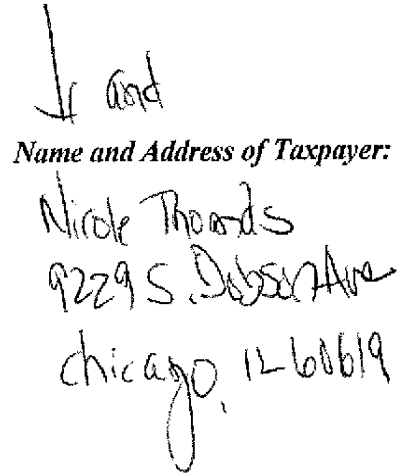 and
Name and Address of Taxpayer:
Nicole Thomas
9229 S. Dobson Ave
Chicago, IL 60619